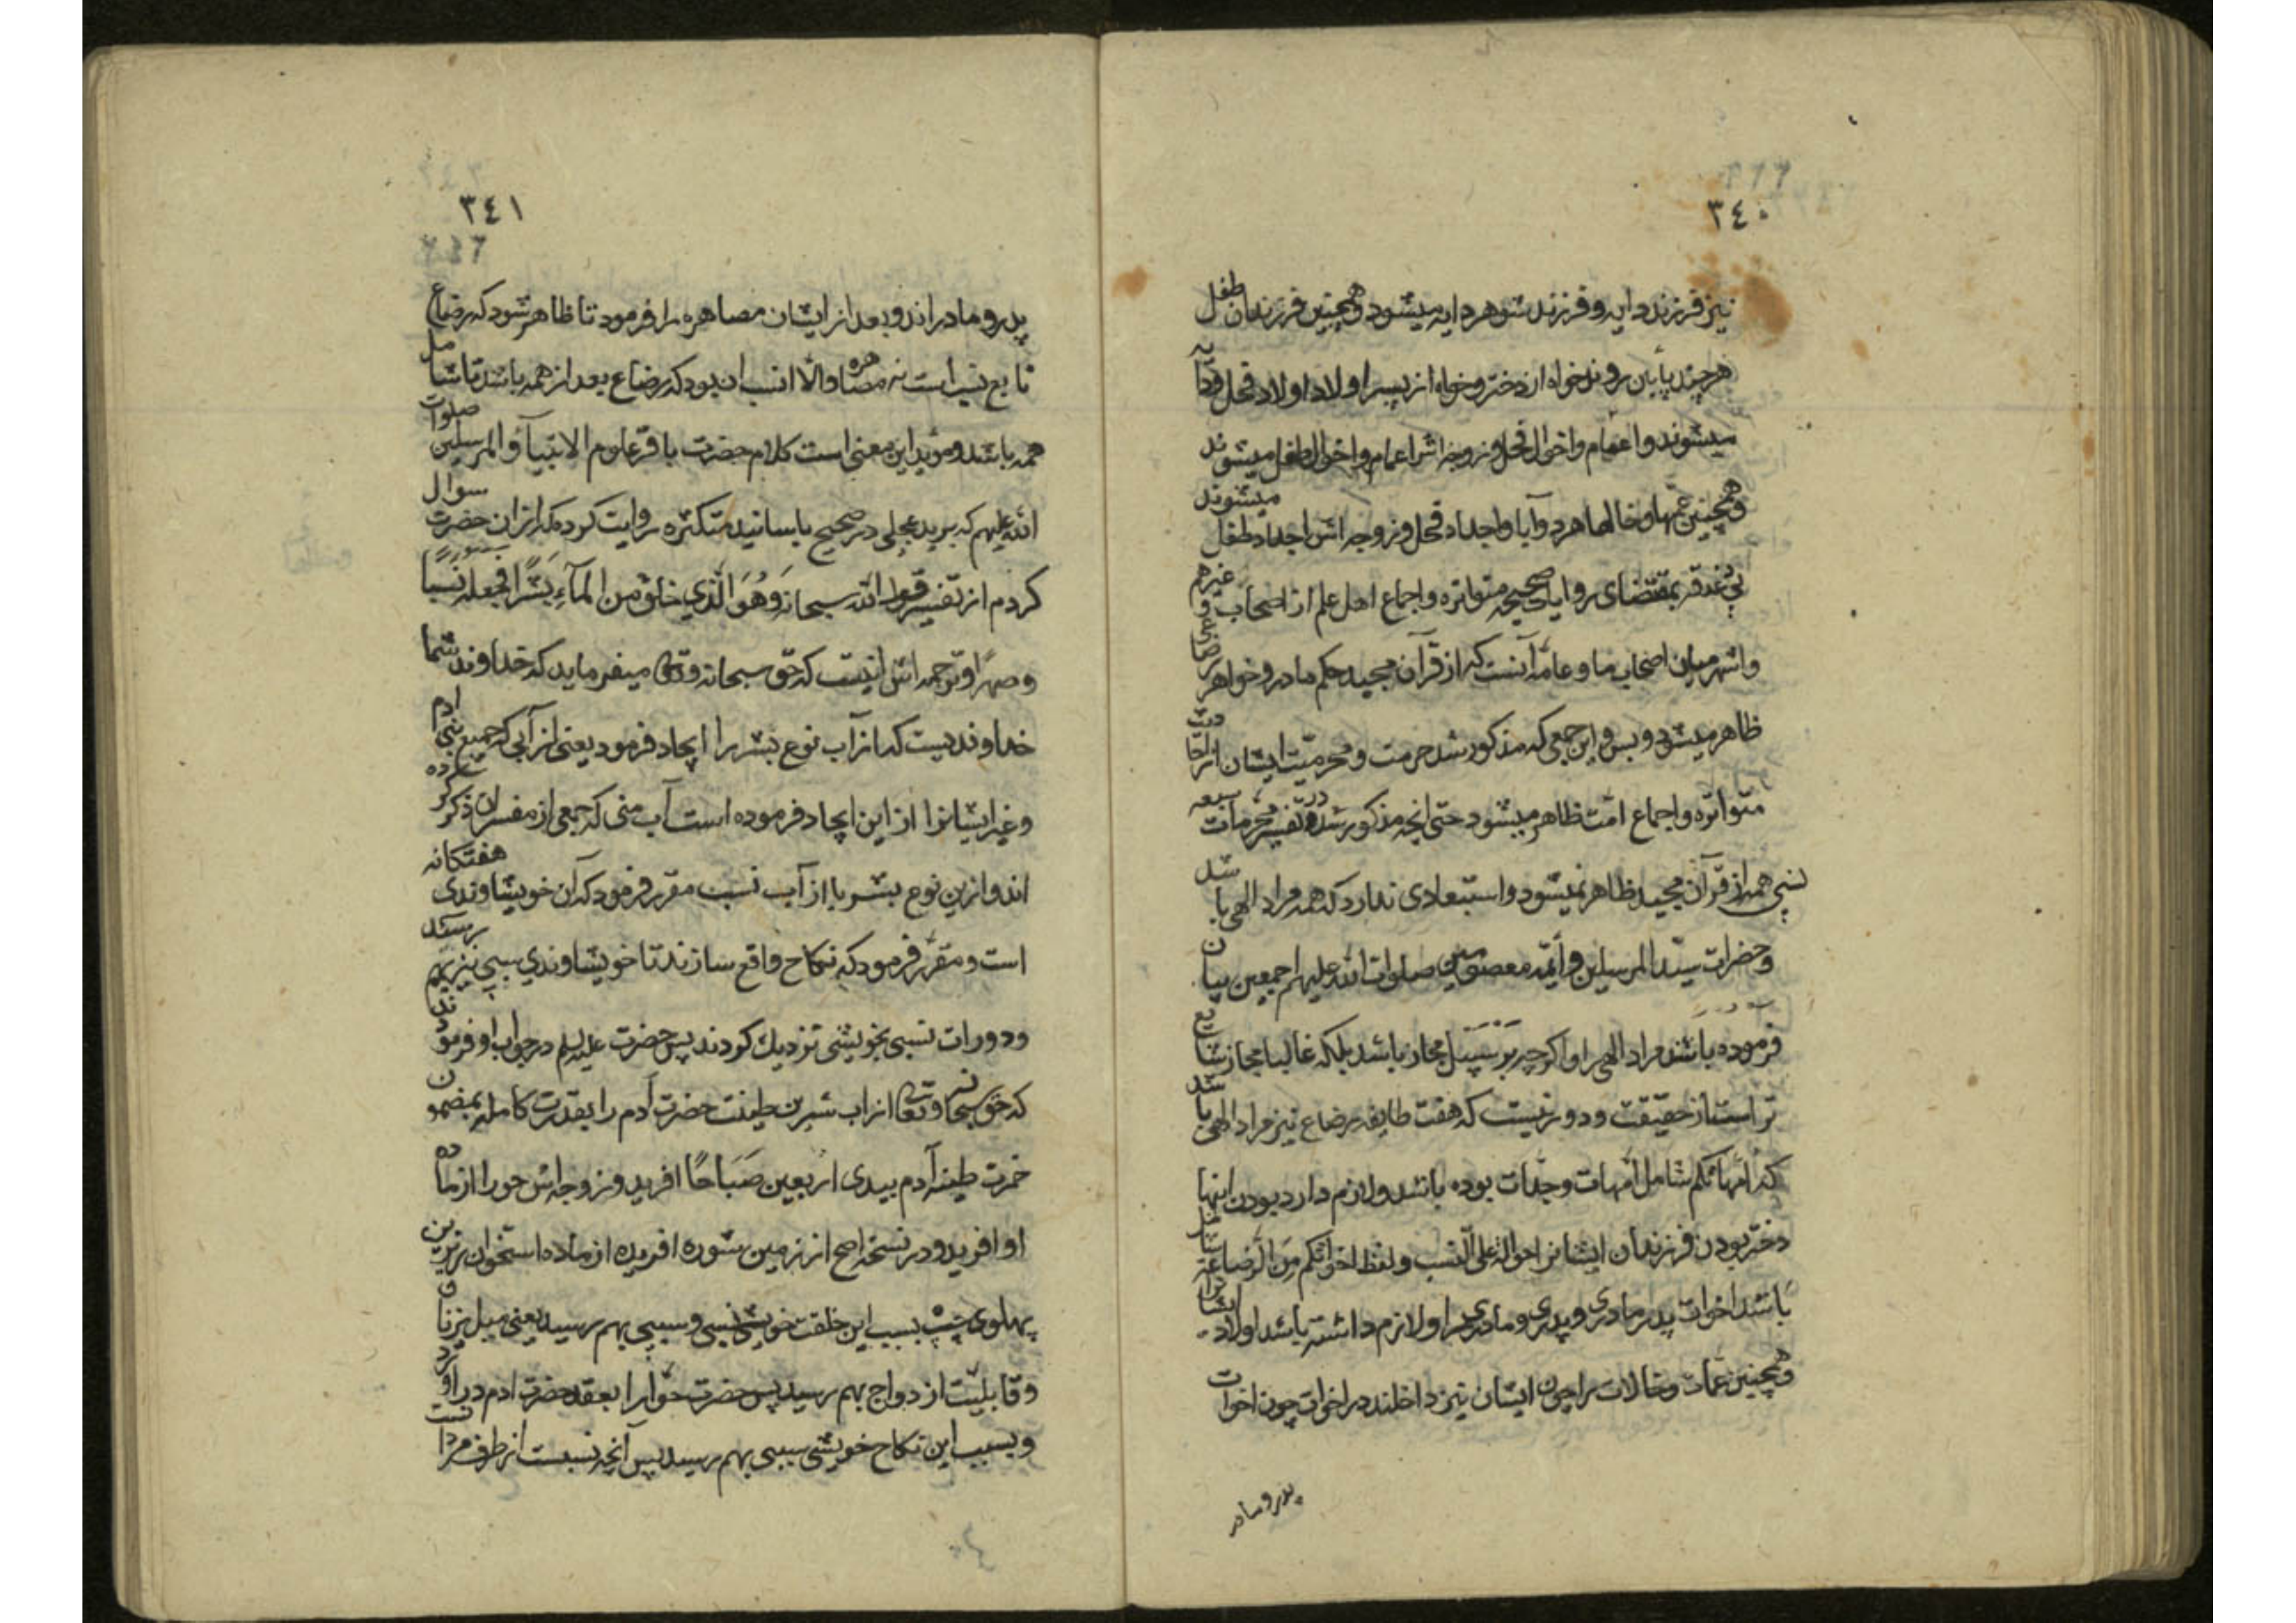 ٣٤٠
نیز فرزند دایه و فرزند شوهر دایه میشود و همچنین فرزندان طفل
هر چند پایین روند خواه از دختر و خواه از پسر اولاد اولاد فحل و دایه
میشوند و اعمام و اخوال فحل و زوجه اش اعمام و اخوال طفل میشوند
و همچنین عمّها و خالها هر دو آبا و اجداد فحل و زوجه اش اجداد طفل میشوند
بی غدقه بمقتضای روایات صحیحه متواتره و اجماع اهل علم از اصحاب و غیرهم
و اشهر میان اصحاب ما و عامّه آنست که از قرآن مجید حکم مادر و خواهر رضاعی
ظاهر میشود و بس و این جمعی که مذکور شد حرمت و محرمیّت ایشان از احادیث
متواتره و اجماع امّت ظاهر میشود حتی آنچه مذکور شد در تفسیر محرمات سبعه
نسبی همه از قرآن مجید ظاهر نمیشود و استبعادی ندارد که همه مراد الهی باشد
و حضرات سیّد المرسلین و ائمّه معصومین صلوات الله علیهم اجمعین بیان
فرموده باشند مراد الهی را و اکرچه بر سَبیل مجاز باشد بلکه غالبا مجاز شایع
تر است از حقیقت و دور نیست که هفت طایفه رضاع نیز مراد الهی باشد
که امّهاتکم شامل امّهات و جدّات بوده باشد و لازم دارد بودن اینها
دختر بودن فرزندان ایشانرا حوالة علی النّسب و لفظ اخواتکم مِنَ الرَّضاعَة شامل
باشد اخوات پدر مادری و پدری و مادری را و لازم داشته باشد اولاد ایشانرا
و همچنین عمّات و خالات را چون ایشان نیز داخلند در اخوات چون اخوات
پدر و مادر
٣٤١
پدر و مادراند و بعد از ایشان مصاهره را فرمود تا ظاهر شود که رضاع
تابع نسب است نه مصاهره و الّا انسب ان بود که رضاع بعد از همه باشد تا شامل
همه باشد و مؤید این معنی است کلام حضرت باقر علوم الانبیآء و المرسلین صلوات
الله علیهم که برید عجلی در صحیح باسانید متکثره روایت کرده که از ان حضرت سوال
کردم از تفسیر قول الله سبحانه وَهُوَ الَّذي خلق من المآءِ بَشَرًا فجعله نَسَبًا
و صهرًا و ترجمه اش اینست که حقّ سبحانه و تعالی میفرماید که خداوند شما
خداوندیست که از آب نوع بشر را ایجاد فرمود یعنی از آبی که جمیع بنی ادم
و غیر ایشانرا از این ایجاد فرموده است آب منی که جمعی از مفسران ذکر کرده
اند و ازین نوع بشر با از آب نسب مقرر فرمود که آن خویشاوندی هفتکانه
است و مقرّر فرمود که نکاح واقع سازند تا خویشاوندي سببی نیز بهم رسند
و دوران نسبی بخویشی نزدیك کردند پس حضرت علیه السلم در جواب او فرمودند
که حقّ سبحانه و تعالی از اب شیرین طینت حضرت آدم را بقدرت کامله بمضمون
خمرت طینه آدم بیدی اربعین صَبَاحًا افرید و زوجه اش حورا از ماده
او افرید و در نسخه اصح از زمین شوره افریده از ماده استخوان زیرین
پهلوی چپ بسبب این خلقت خویشی نسبی و سببی بهم رسید یعنی میل بزناف
و قابلیّت ازدواج بهم رسید پس حضرت حوّا را بعقد حضرت ادم در آورد
و بسبب این نکاح خویشی سببی بهم رسید پس آنچه نسبت از طرف مرد است